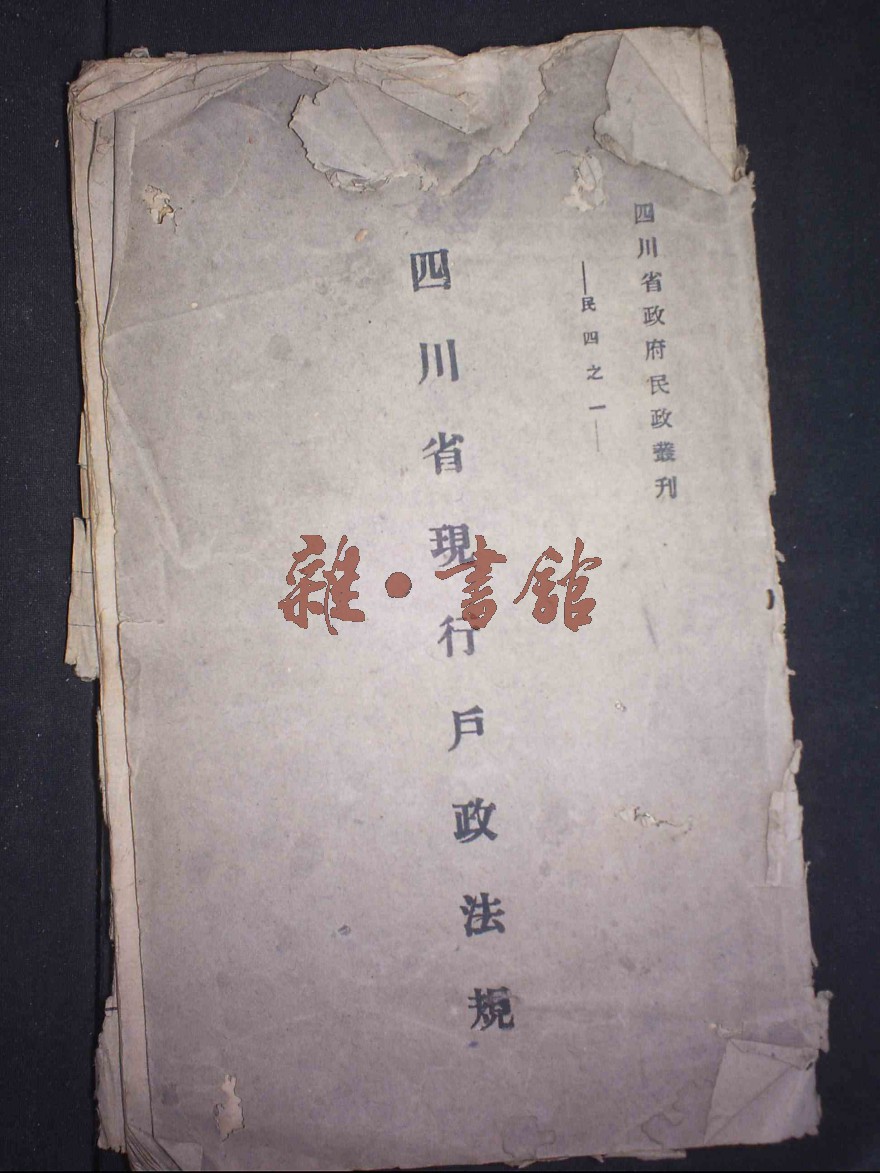 四川省政府民政叢刊
——民四之一——
四川省現行戶政法規
雜·書館